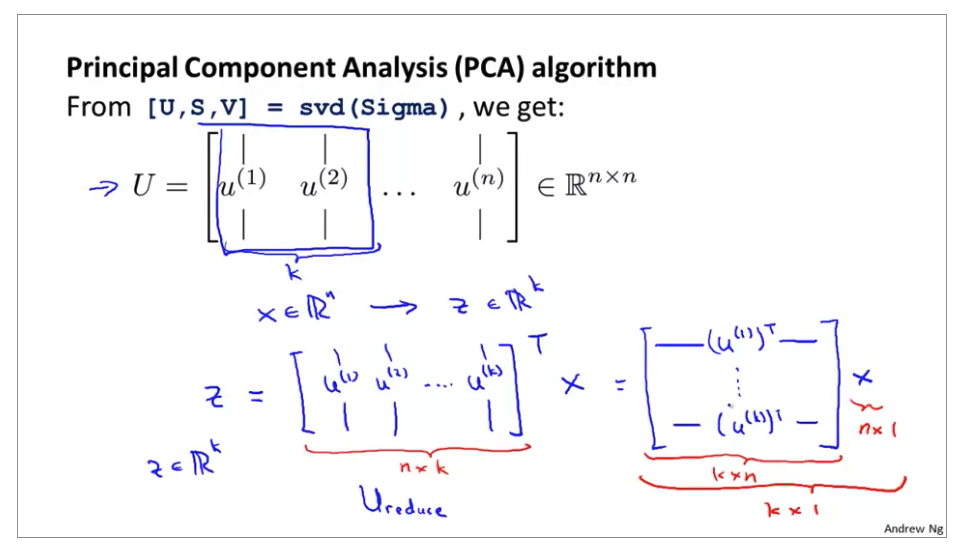 Principal Component Analysis (PCA) algorithm
From [U,S,V] = svd(Sigma) , we get:
→ U = [ u^(1) u^(2) ... u^(n) ] ∈ ℝ^{n×n}
k
x ∈ ℝ^n → z ∈ ℝ^k
z = [ u^(1) u^(2) .... u^(k) ]^T x = [ —(u^(1))^T— ⋮ —(u^(k))^T— ] x
z ∈ ℝ^k
n×k
k×n
n×1
U_reduce
k×1
Andrew Ng